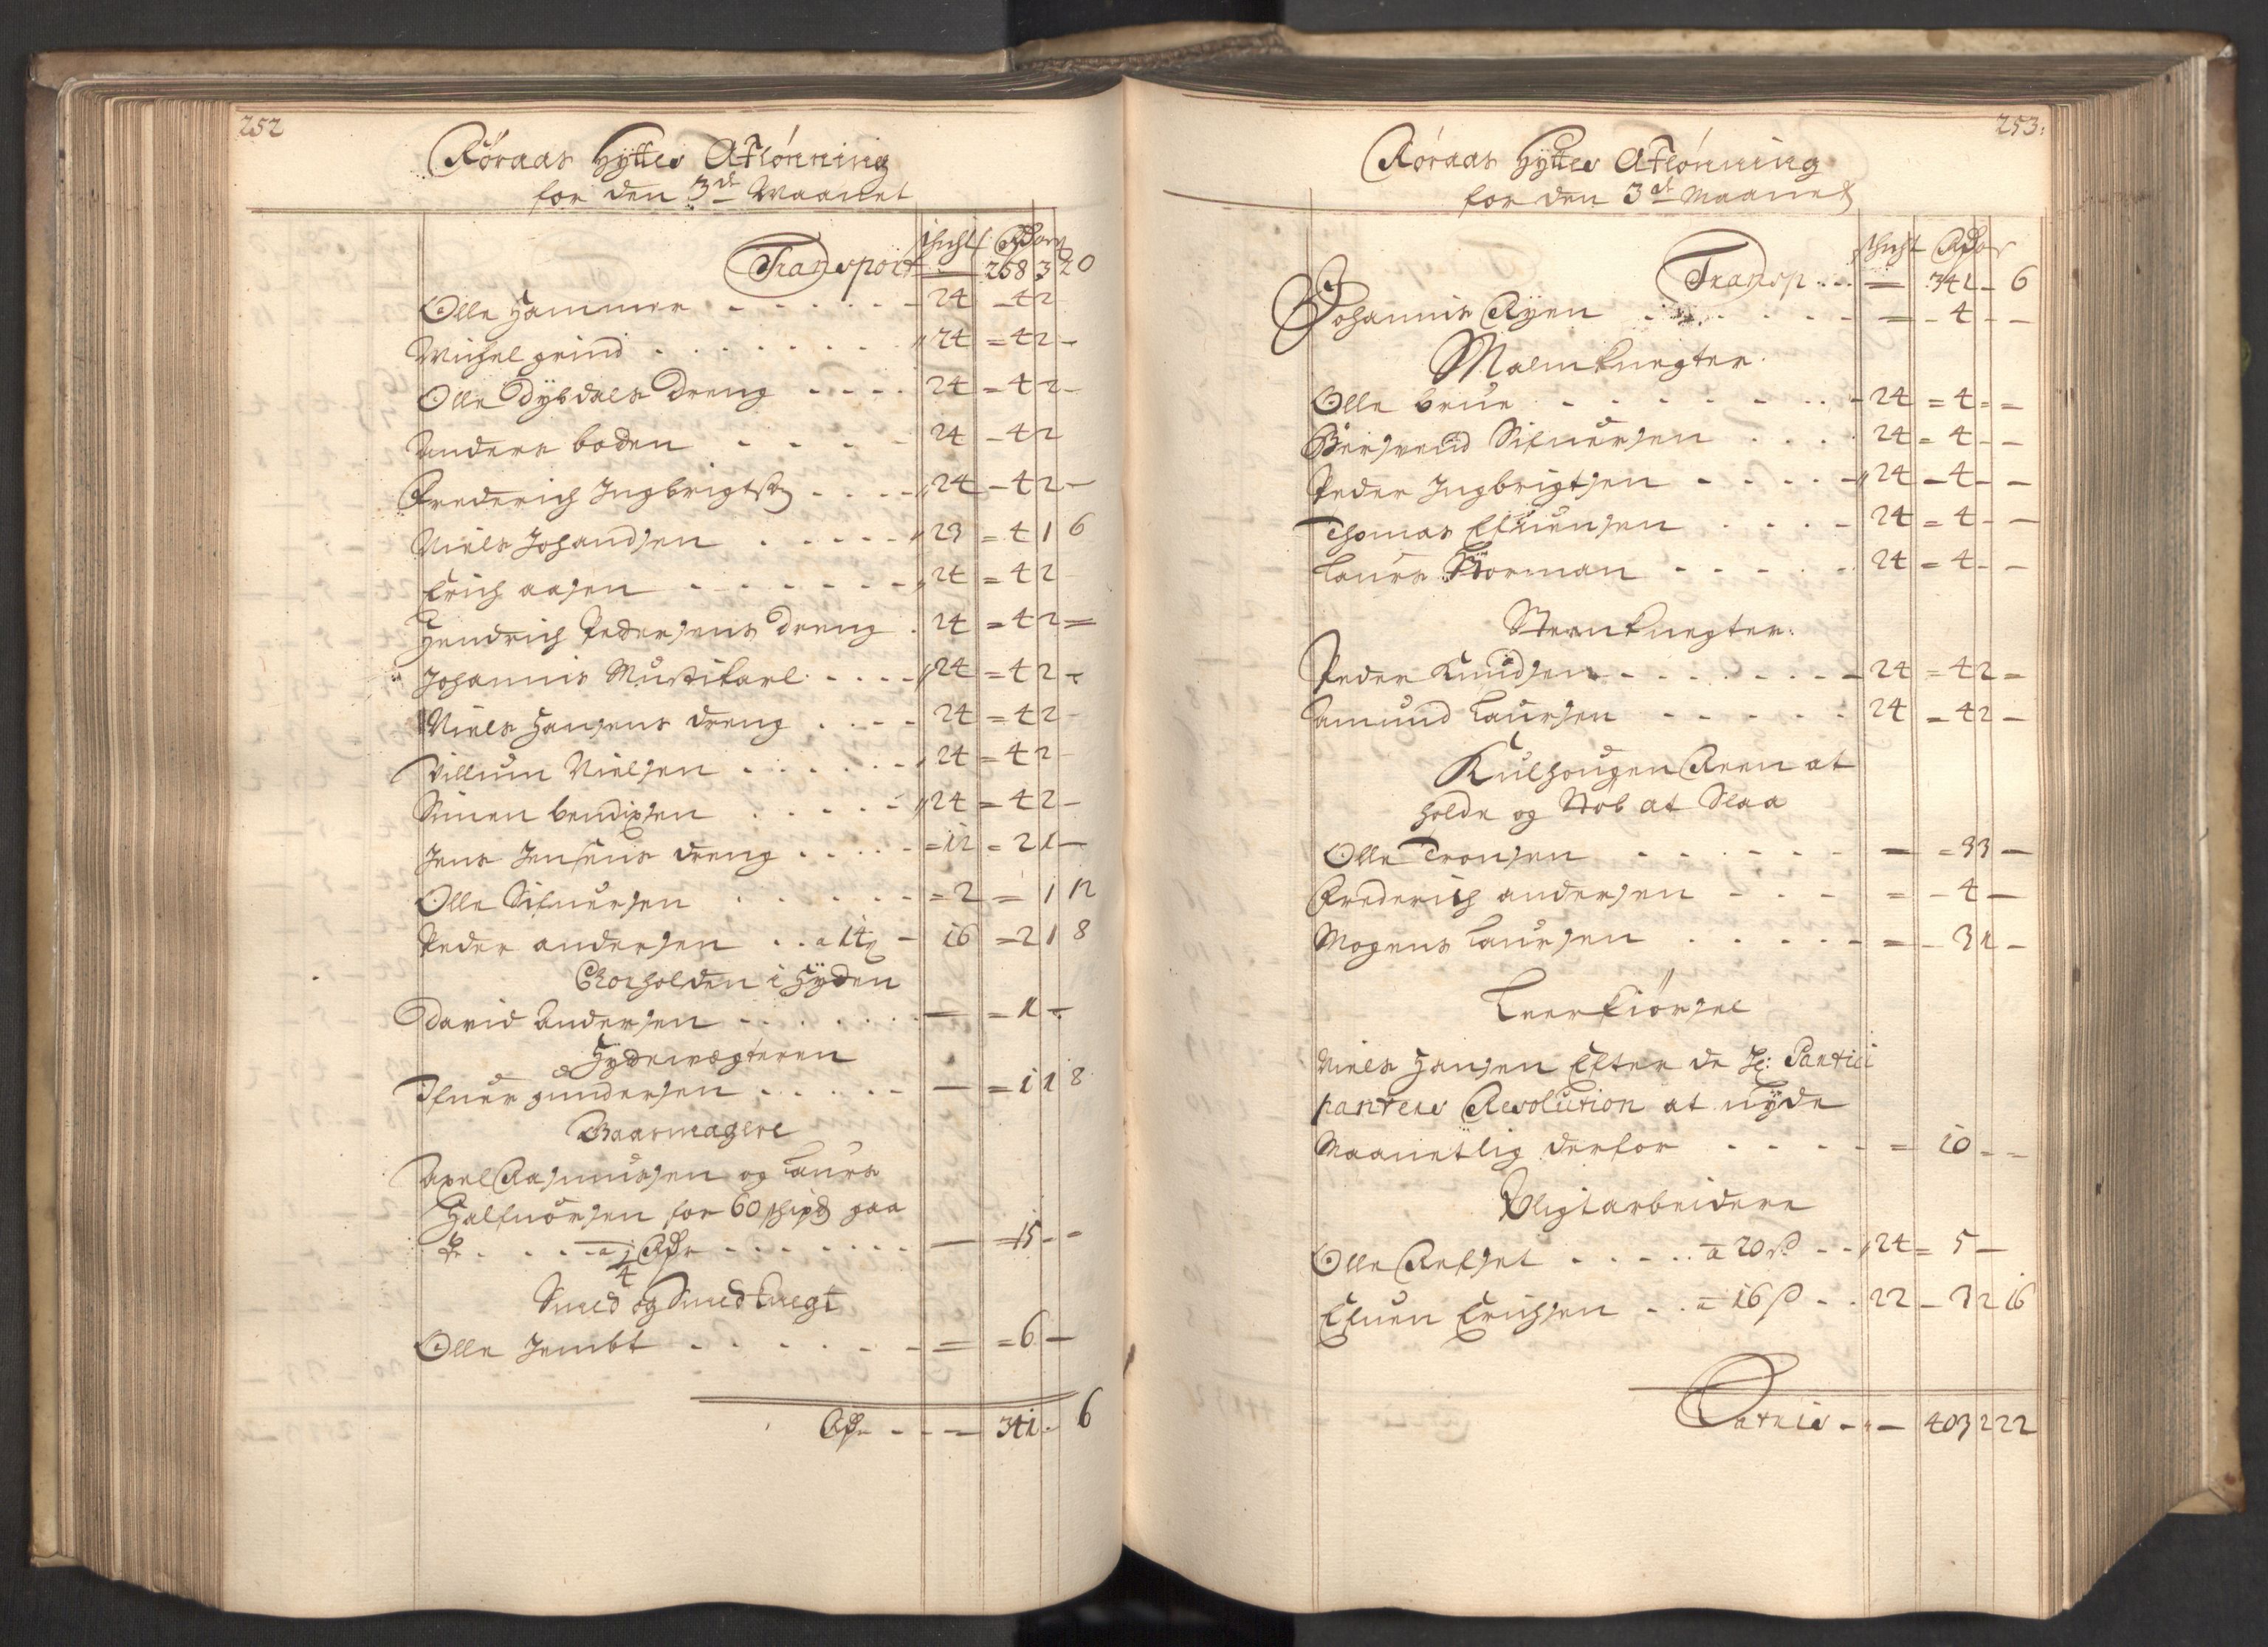 252
Röraas Hÿttes Aflönning
for den 3de Maanet
Schicht Rdr ort
Transport — 268 3 20
Olle Hammer - - - - - - 24 - 4 2
Michel grind . . . . . . . 24 = 4 2 -
Olle Dÿbdals Dreng - - - - 24 = 4 2 -
Anders boden - - - - 24 - 4 2
Frederich Ingbrigtsen . . . . 24 - 4 2 -
Niels Johandsen . . . . . 23 = 4 1 6
Erich aasen - - - - - - 24 = 4 2
Hendrich Pedersens Dreng . 24 = 4 2 =
Johannis Mustikarl . . . . 24 = 4 2 -
Niels Hansens dreng . . . . 24 = 4 2 -
Villum Nielsen . . . . . . 24 = 4 2
Simen bendixen . . . . . 24 = 4 2 -
Jens Jensens dreng . . . . = 12 = 2 1 —
Olle Sifuersen . . . . . . = 2 = 1 12
Peder andersen . . a 14 - 16 = 2 1 8
holden i Hÿden
David Andersen - . . . . . — = 1 -
Hÿdevegteren
Ifuer gundersen . . . . . . — = 1 1 8
Baarmagere
Axel Rasmussen og Laurs
Halfuorsen for 60 paa
. . . . a 1/4 Rdr - . . . . . . — = 15 - -
Smed og Smedknegt
Olle Jembt - . . . . . . = = 6 —
Rdr - - — 341 - 6
253:
Röraas Hÿttes Aflönning
for den 3de Maanet
Schicht Rdr or
Transp . . . = 341 - 6
Johannis Rÿen . . . . . . = - 4 - -
Malmknegter.
Olle brue - - - - - - . . 24 = 4 = =
Bersvend Sifuersen . . . . 24 = 4 - -
Peder Ingbrigtsen - . . . - 24 - 4 - -
Thomas Estensen . . . - 24 = 4 - -
Laurs Norman - - - - . 24 = 4 - -
Steenknegter:
Peder Knudsen - - . . . . . - 24 = 4 2 =
Amund Laursen - - - - - 24 - 4 2 -
Kulhougen Reen at
holde og Stob at Slaa
Olle Tronsen - - - - - - — = 3 3 —
Frederich andersen - - - - = - 4 —
Mogens Laursen . . . . . = - 3 1 -
Leerkiörsel
Niels Hansen Efter de H: Partici
panters Resolution at nÿde
Maanetlig derfor - - - - = 10 - -
Uligtarbeidere
Olle Refset . . . . . a 20 ß - - 24 = 5 —
Efuen Erichsen . . a 16 ß - . 22 - 3 2 16
Lateris - - — 403 2 22